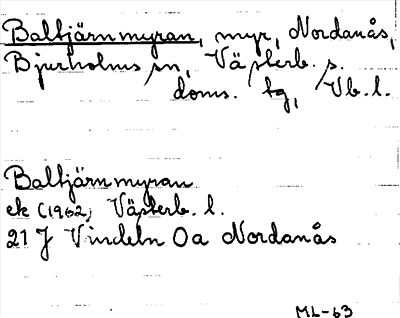 Baltjärnmyran, myr, Nordanås,
Bjurholms sn, Västerb. s.
doms. tg, Vb. l.
Baltjärnmyran
ek (1962) Västerb. l.
21 J Vindeln 0a Nordanås
ML-63